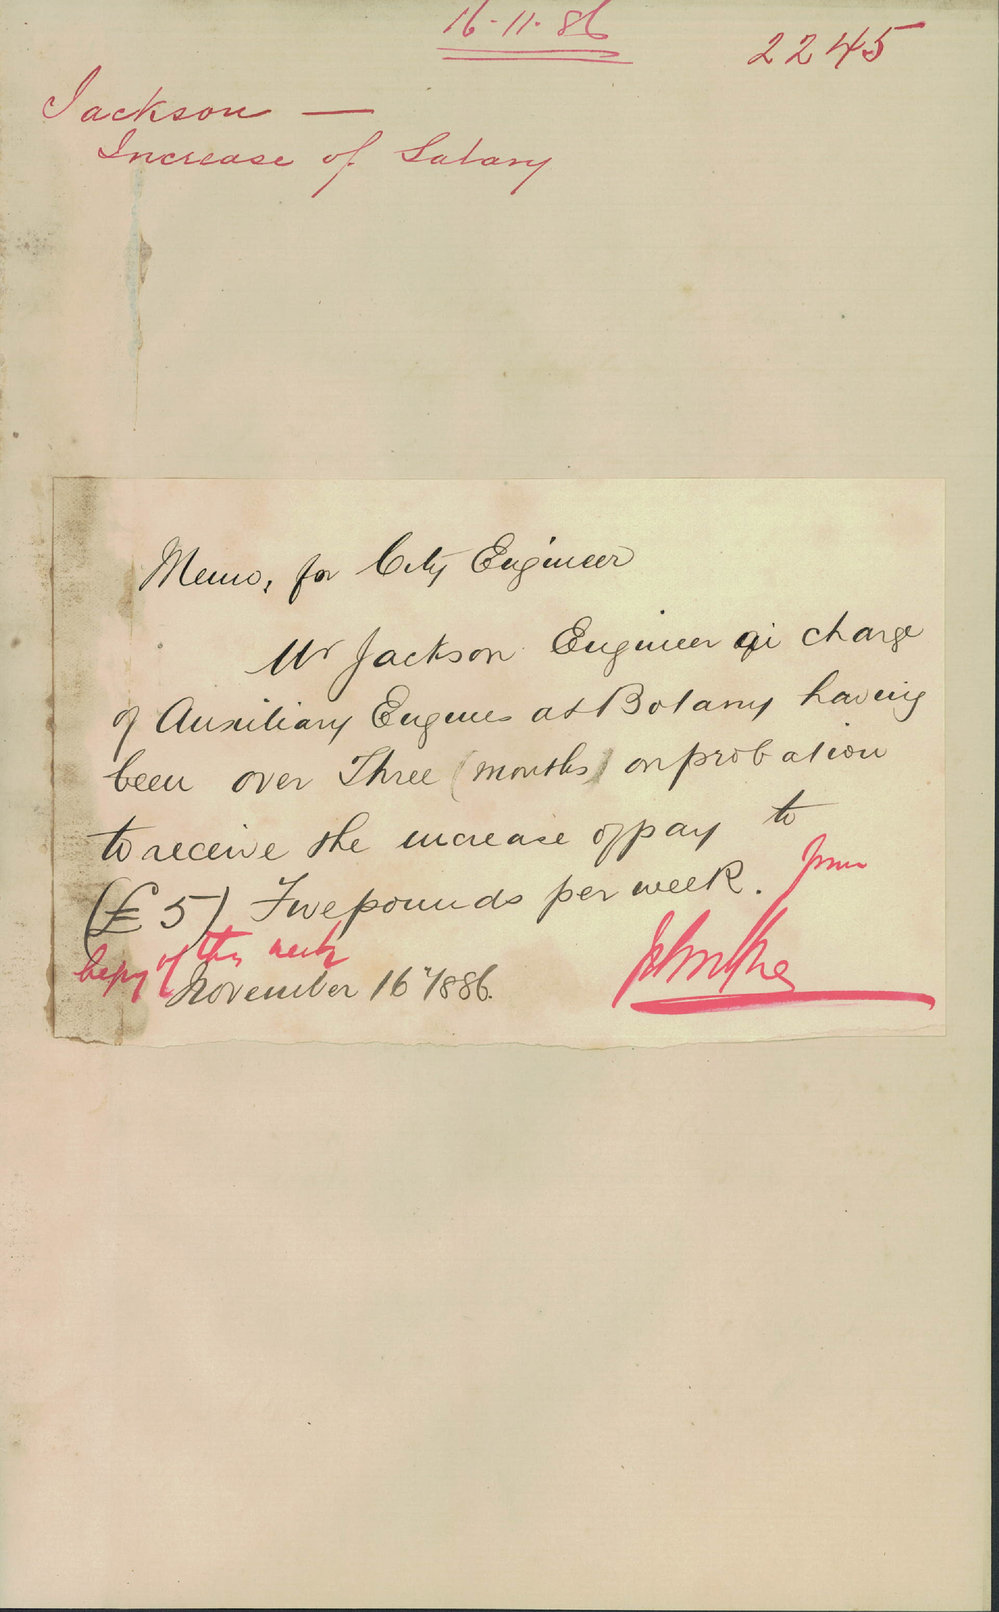 16-11-86
2245
Jackson —
Increase of Salary
Memo, for City Engineer
Mr Jackson Engineer in charge
of Auxiliary Engines at Botany having
been over Three (months) on probation
to receive the increase of pay to
(£5) Five pounds per week. from
of this week
November 16th/1886.